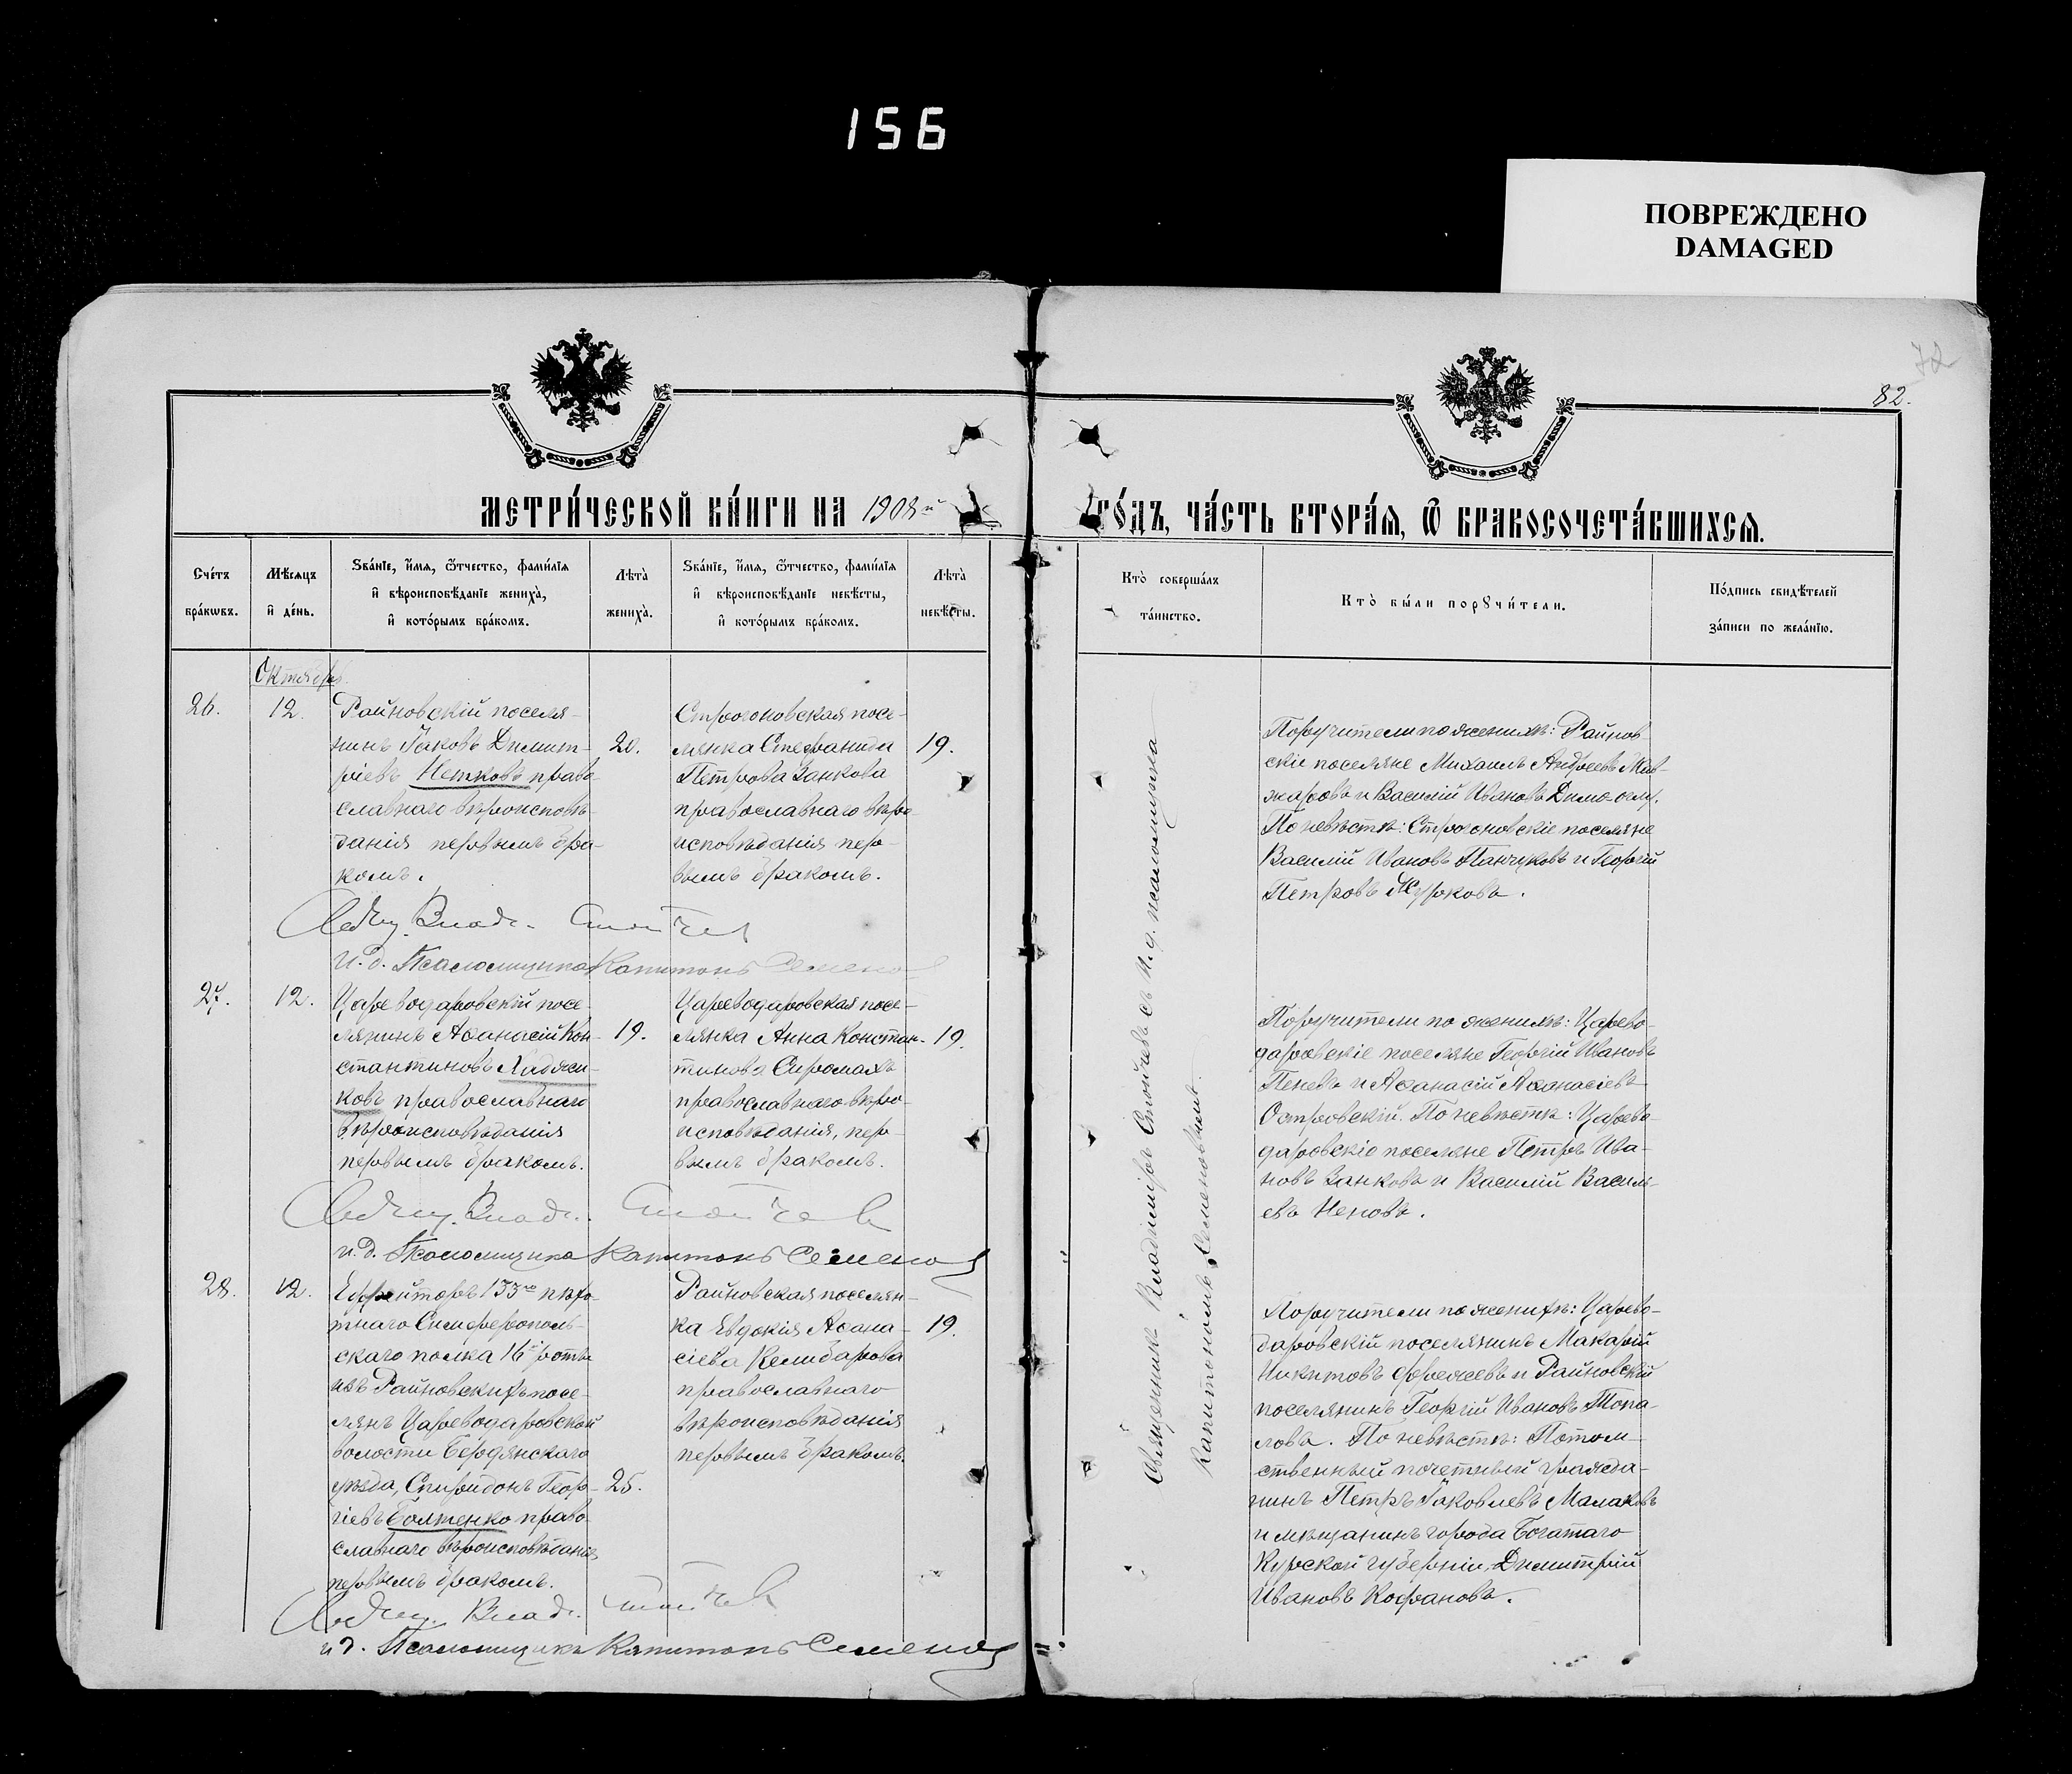 156
ПОВРЕЖДЕНО
DAMAGED
72
82.
МЕТРИ́ЧЕСКОЙ КНИ́ГИ НА 1908й
ГО́ДЪ, ЧА́СТЬ ВТОРА́Я, Ѿ БРАКОСОЧЕТА́ВШИХСЯ.
Сче́тъ
бра́кωвъ.
Мѣ́сяцъ
и҆ де́нь.
Зва́нїе, и҆́мя, ѻ҆́тчество, фами́лїя
и҆ вѣроисповѣ́данїе жениха̀,
и҆ кото́рымъ бра́комъ.
Лѣта̀
жениха̀.
Зва́нїе, и҆́мя, ѻ҆́тчество, фами́лїя
и҆ вѣроисповѣ́данїе невѣ́сты,
и҆ кото́рымъ бра́комъ.
Лѣта̀
невѣ́сты.
Кто̀ соверша́лъ
та́инство.
Кто̀ бы́ли порꙋчи́тели.
По́дпись свидѣ́телей
за́писи по жела́нїю.
Октябрь.
26.
12.
Райновскій поселя-
нинъ Іаковъ Димит-
ріевъ Нетковъ право
славнаго вѣроисповѣ-
данія первымъ бра-
комъ.
20.
Строгоновская посе-
лянка Стефанида
Петрова Занкова
православнаго вѣро
исповѣданія пер-
вымъ бракомъ.
19.
Поручители по женихѣ: Райнов
скіе поселяне Михаилъ Андреевъ
и Василій Ивановъ
По невѣстѣ: Строгоновскіе поселяне
Василій Ивановъ Панчуковъ и Георгій
Петровъ Журковъ.
Свящ. Влад. Стойчев
И.д. Псаломщика Капитонъ Семенов
27.
12.
Цареводаровскій посе-
лянинъ Аѳанасій Кон-
стантиновъ Хаджи-
ковъ православнаго
вѣроисповѣданія
первымъ бракомъ.
19.
Цареводаровская посе-
лянка Анна Констан-
тинова Сиромахъ
православнаго вѣро-
исповѣданія, пер-
вымъ бракомъ.
19.
Поручители по женихѣ: Царево-
даровскіе поселяне Георгій Ивановъ
Пеневъ и Аѳанасій Аѳанасіевъ
Островскій. По невѣстѣ: Царево-
даровскіе поселяне Петръ Ива-
новъ Занковъ и Василій Василь-
евъ Неновъ.
Свящ. Влад. Стойчев
И.д. Псаломщика Капитонъ Семенов
28.
12.
Ефрейторъ 133го пѣхо-
тнаго Симферополь-
скаго полка 16й роты
изъ Райновскихъ посе-
лянъ Цареводаровской
волости Бердянскаго
уѣзда, Спиридонъ Геор-
гіевъ Болтенко право
славнаго вѣроисповѣданія
первымъ бракомъ.
25.
Райновская поселян-
ка Евдокія Аѳана-
сіева Келибарова
православнаго
вѣроисповѣданія
первымъ бракомъ.
19.
Поручители по женихѣ: Царево-
даровскій поселянинъ Макарій
Никитовъ и Райновскій
поселянинъ Георгій Ивановъ Топа-
ловъ. По невѣстѣ: Потом-
ственный почетный гражда-
нинъ Петръ Іаковлевъ Малаховъ
и мѣщанинъ города Богатаго
Курской губерніи, Димитрій
Ивановъ Кофановъ.
Свящ. Влад. Стойчев
и.д. Псаломщика Капитонъ Семенов
Священникъ Владиміръ Стойчевъ съ И.д. псаломщика
Капитономъ Семеновымъ.